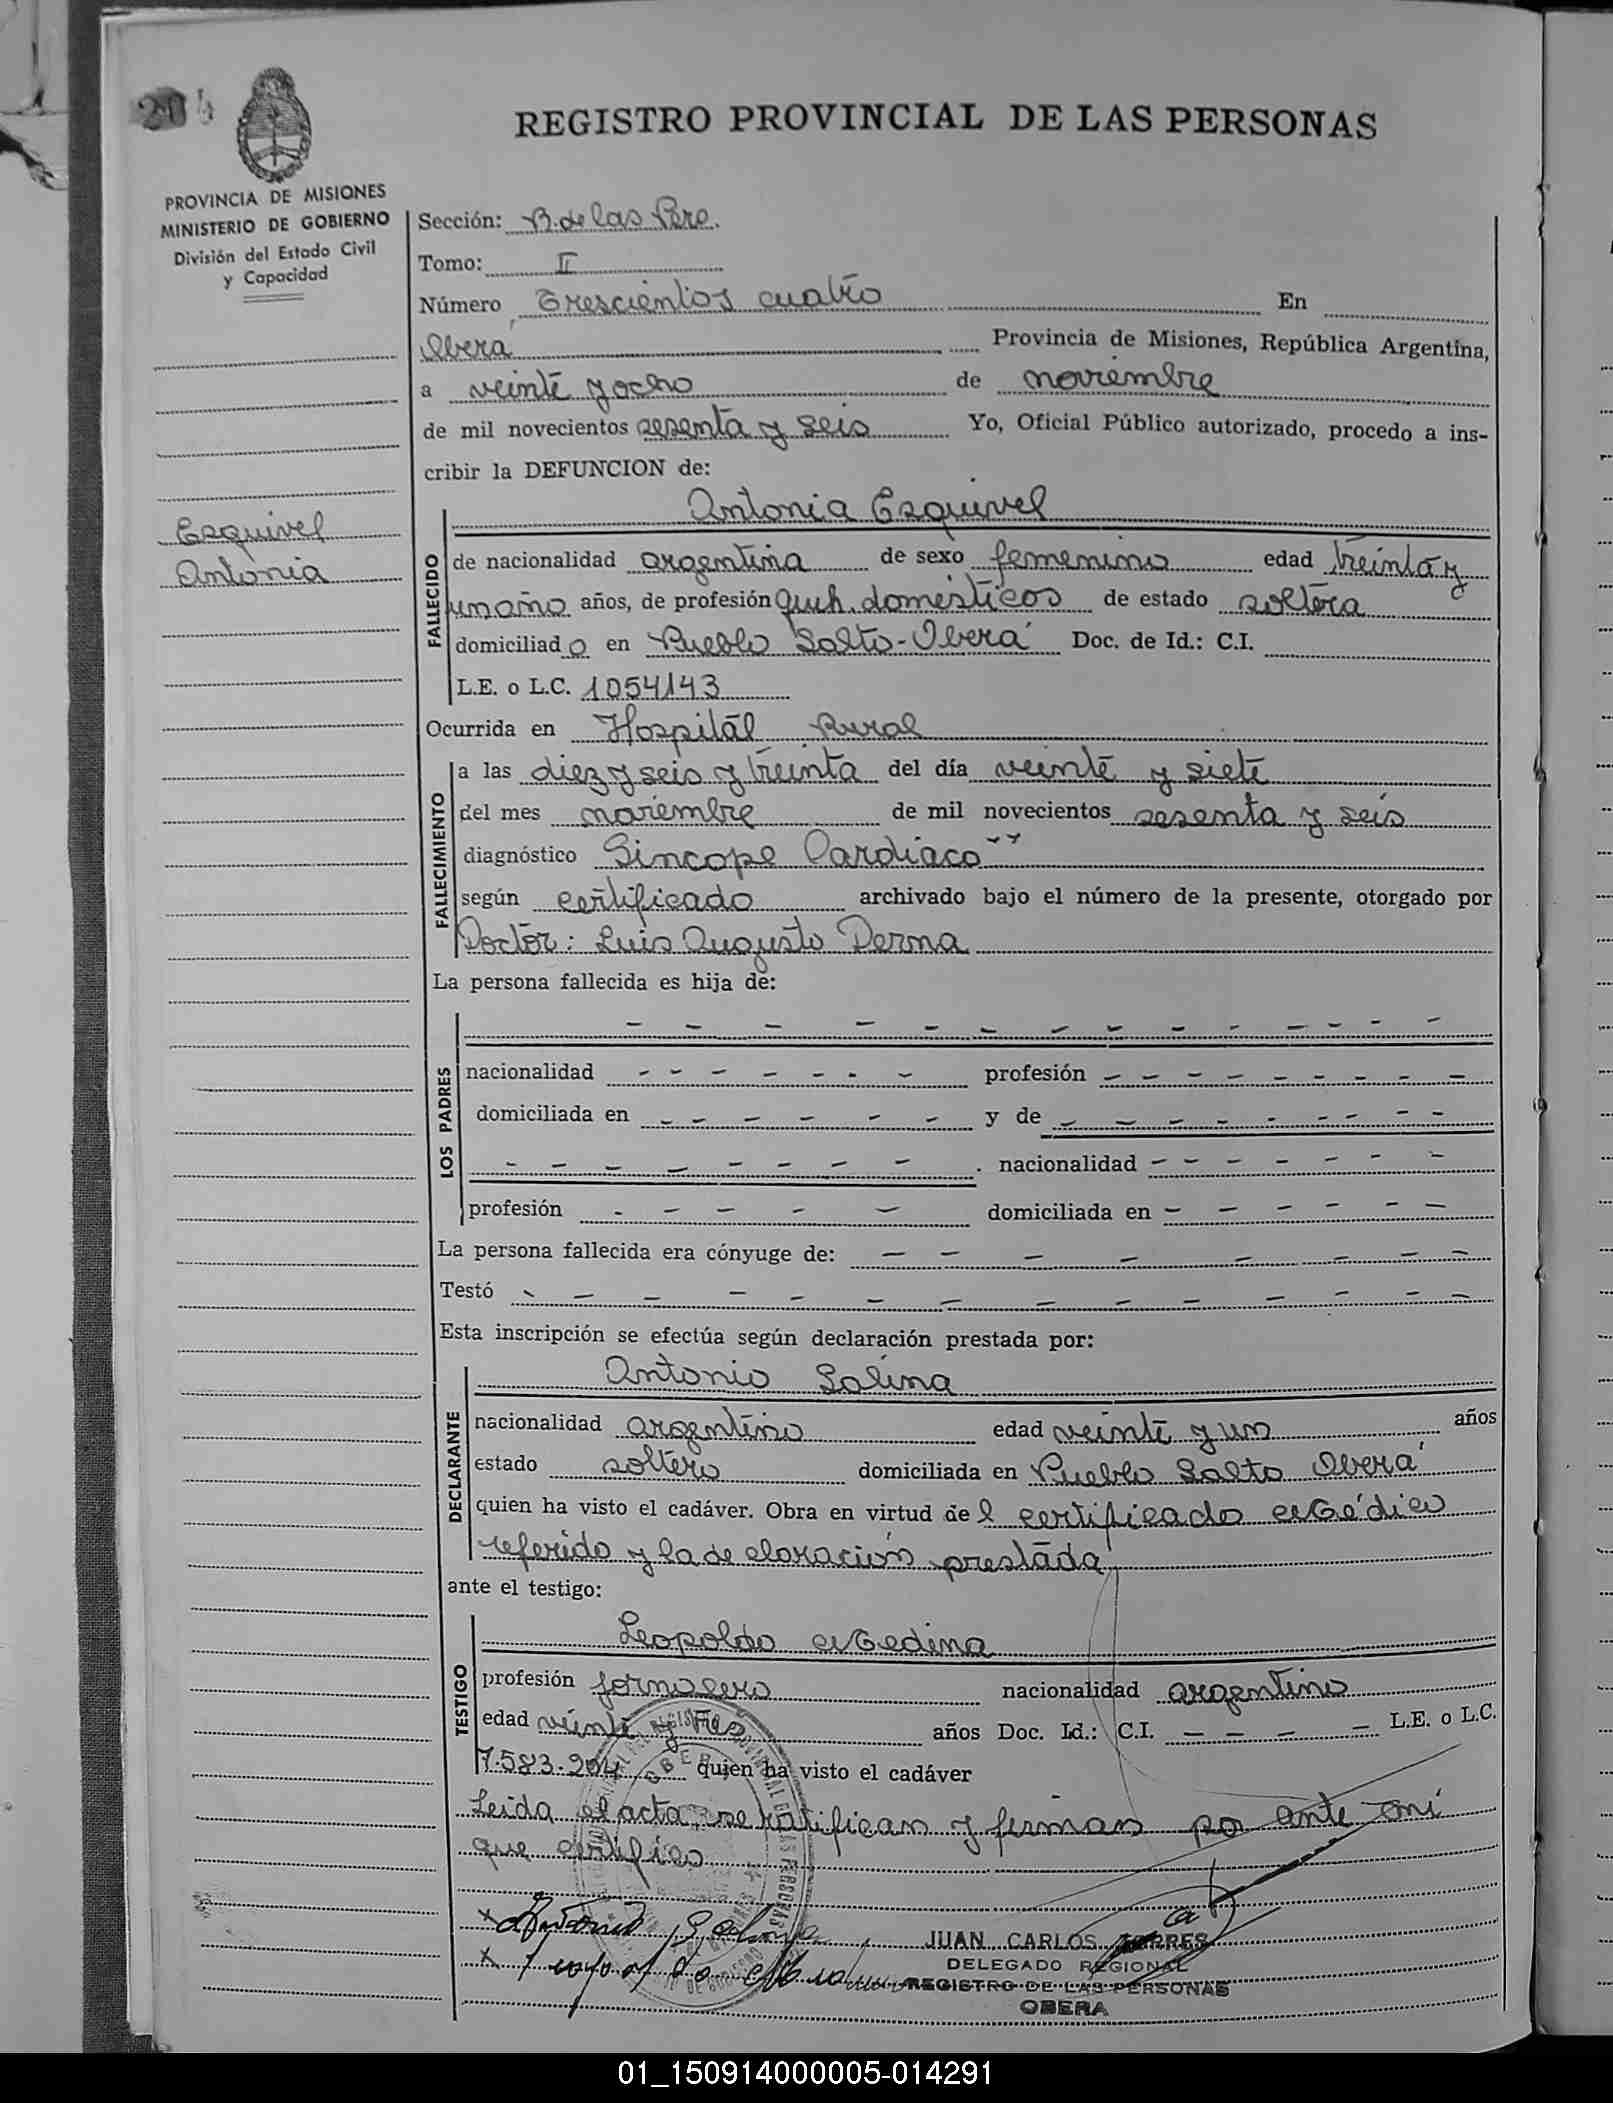 204
REGISTRO PROVINCIAL DE LAS PERSONAS
PROVINCIA DE MISIONES
MINISTERIO DE GOBIERNO
División del Estado Civil
y Capacidad
Sección: R. de las Pers.
Tomo: II
Número Trescientos cuatro En
Obera Provincia de Misiones, República Argentina,
a veinte y ocho de noviembre
de mil novecientos sesenta y seis Yo, Oficial Público autorizado, procedo a ins-
cribir la DEFUNCION de:
Esquivel
Antonia
FALLECIDO
Antonia Esquivel
de nacionalidad argentina de sexo femenino edad treinta y
un año años, de profesión Queh. domésticos de estado soltera
domiciliado en Pueblo Salto-Oberá Doc. de Id.: C.I.
L.E. o L.C. 1054143
Ocurrida en Hospital Rural
FALLECIMIENTO
a las diez y seis y treinta del día veinte y siete
del mes noviembre de mil novecientos sesenta y seis
diagnóstico Sincope Cardiaco
según certificado archivado bajo el número de la presente, otorgado por
Doctor: Luis Augusto Derna
La persona fallecida es hija de:
LOS PADRES
- - - - - - - - - - - - - -
nacionalidad - - - - - - - profesión - - - - - - - - -
domiciliada en - - - - - - - y de - - - - - - - - -
- - - - - - - - . nacionalidad - - - - - - -
profesión - - - - - domiciliada en - - - - - - -
La persona fallecida era cónyuge de: - - - - - - - - -
Testó - - - - - - - - - - - - - -
Esta inscripción se efectúa según declaración prestada por:
DECLARANTE
Antonio Salina
nacionalidad argentino edad veinte y un años
estado soltero domiciliada en Pueblo Salto Oberá
quien ha visto el cadáver. Obra en virtud del certificado Médico
referido y la declaración prestada
ante el testigo:
TESTIGO
Leopoldo Medina
profesión jornalero nacionalidad argentino
edad veinte y tres años Doc. Id.: C.I. - - - - L.E. o L.C.
7.583.204 quien ha visto el cadáver
Leida el acta se ratifican y firman po ante mí
que certifico
x Antonio
x
JUAN CARLOS TORRES
DELEGADO REGIONAL
REGISTRO DE LAS PERSONAS
OBERA
01_150914000005-014291